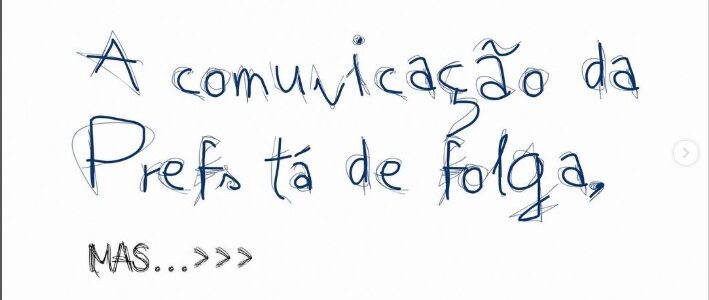 A comunicação da
Prefs tá de folga,
MAS...>>>